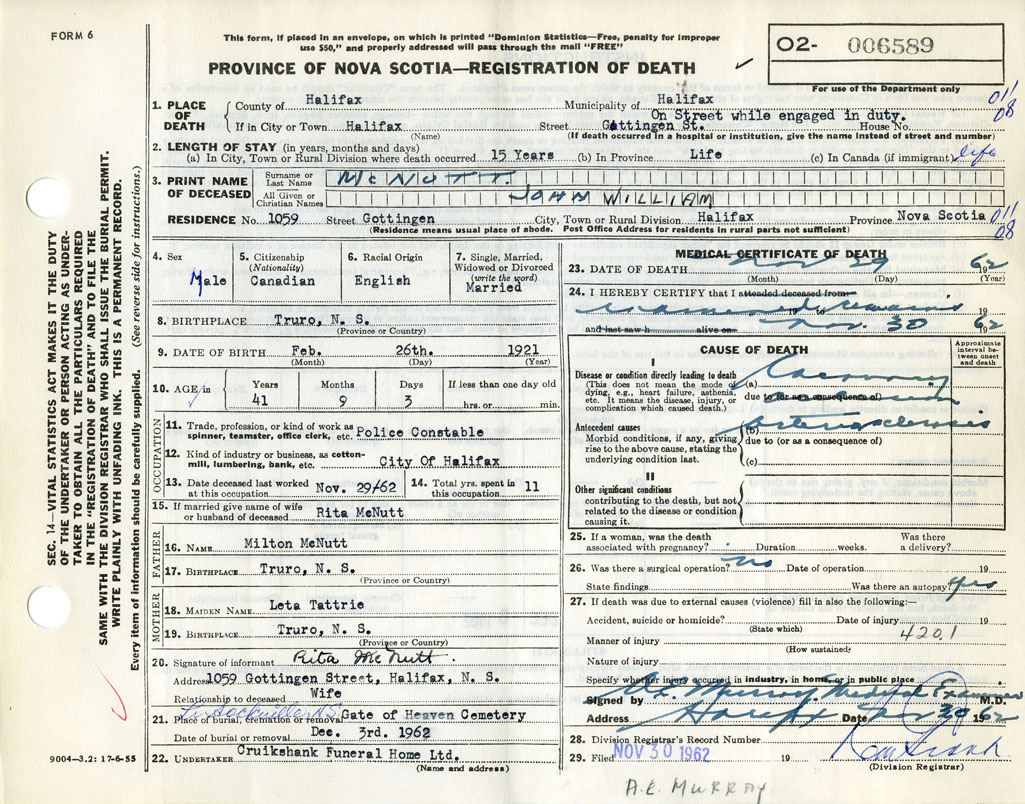 FORM 6
This form, if placed in an envelope, on which is printed "Dominion Statistics—Free, penalty for improper
use $50," and properly addressed will pass through the mail "FREE"
PROVINCE OF NOVA SCOTIA—REGISTRATION OF DEATH
02- 006589
For use of the Department only
011
08
1. PLACE OF DEATH
County of Halifax Municipality of Halifax
On Street while engaged in duty.
If in City or Town Halifax Street Gottingen St. House No.
(Name) (If death occurred in a hospital or institution, give the name instead of street and number)
2. LENGTH OF STAY (in years, months and days)
(a) In City, Town or Rural Division where death occurred 15 Years (b) In Province Life (c) In Canada (if immigrant) life
3. PRINT NAME OF DECEASED
Surname or Last Name McNUTT.
All Given or Christian Names JOHN WILLIAM
RESIDENCE No. 1059 Street Gottingen City, Town or Rural Division Halifax Province Nova Scotia 011
08
(Residence means usual place of abode. Post Office Address for residents in rural parts not sufficient)
4. Sex Male
5. Citizenship (Nationality) Canadian
6. Racial Origin English
7. Single, Married, Widowed or Divorced (write the word) Married
8. BIRTHPLACE Truro, N. S.
(Province or Country)
9. DATE OF BIRTH Feb. 26th. 1921
(Month) (Day) (Year)
10. AGE in Years 41 Months 9 Days 3 If less than one day old hrs. or min.
OCCUPATION
11. Trade, profession, or kind of work as spinner, teamster, office clerk, etc. Police Constable
12. Kind of industry or business, as cotton-mill, lumbering, bank, etc. City Of Halifax
13. Date deceased last worked at this occupation Nov. 29/62 14. Total yrs. spent in this occupation 11
15. If married give name of wife or husband of deceased Rita McNutt
FATHER
16. NAME Milton McNutt
17. BIRTHPLACE Truro, N. S.
(Province or Country)
MOTHER
18. MAIDEN NAME Leta Tattrie
19. BIRTHPLACE Truro, N. S.
(Province or Country)
20. Signature of informant Rita McNutt.
Address 1059 Gottingen Street, Halifax, N. S.
Relationship to deceased Wife
21. Place of burial, cremation or removal Gate of Heaven Cemetery
Date of burial or removal Dec. 3rd. 1962
22. UNDERTAKER Cruikshank Funeral Home Ltd.
(Name and address)
MEDICAL CERTIFICATE OF DEATH
23. DATE OF DEATH Nov 29 1962
(Month) (Day) (Year)
24. I HEREBY CERTIFY that I attended deceased from
19 to
and last saw h alive on Nov. 30 1962
CAUSE OF DEATH
Approximate interval between onset and death
I
Disease or condition directly leading to death
(This does not mean the mode of dying, e.g., heart failure, asthenia, etc. It means the disease, injury, or complication which caused death.)
(a) Coronary
due to (or as a consequence of)
Antecedent causes
Morbid conditions, if any, giving rise to the above cause, stating the underlying condition last.
(b) Arteriosclerosis
due to (or as a consequence of)
(c)
II
Other significant conditions
contributing to the death, but not related to the disease or condition causing it.
25. If a woman, was the death associated with pregnancy? Duration weeks. Was there a delivery?
26. Was there a surgical operation? no Date of operation 19
State findings Was there an autopsy? Yes
27. If death was due to external causes (violence) fill in also the following:—
Accident, suicide or homicide? Date of injury 19
(State which) 420.1
Manner of injury
(How sustained)
Nature of injury
Specify whether injury occurred in industry, in home, or in public place
Signed by Murray Medical Examiner M.D.
Address Halifax Date Nov 30 1962
28. Division Registrar's Record Number
29. Filed NOV 30 1962 19
(Division Registrar)
A.E. MURRAY
SEC. 14—VITAL STATISTICS ACT MAKES IT THE DUTY
OF THE UNDERTAKER OR PERSON ACTING AS UNDER-
TAKER TO OBTAIN ALL THE PARTICULARS REQUIRED
IN THE "REGISTRATION OF DEATH" AND TO FILE THE
SAME WITH THE DIVISION REGISTRAR WHO SHALL ISSUE THE BURIAL PERMIT.
WRITE PLAINLY WITH UNFADING INK. THIS IS A PERMANENT RECORD.
Every item of information should be carefully supplied. (See reverse side for instructions.)
9004—3.2: 17-6-55